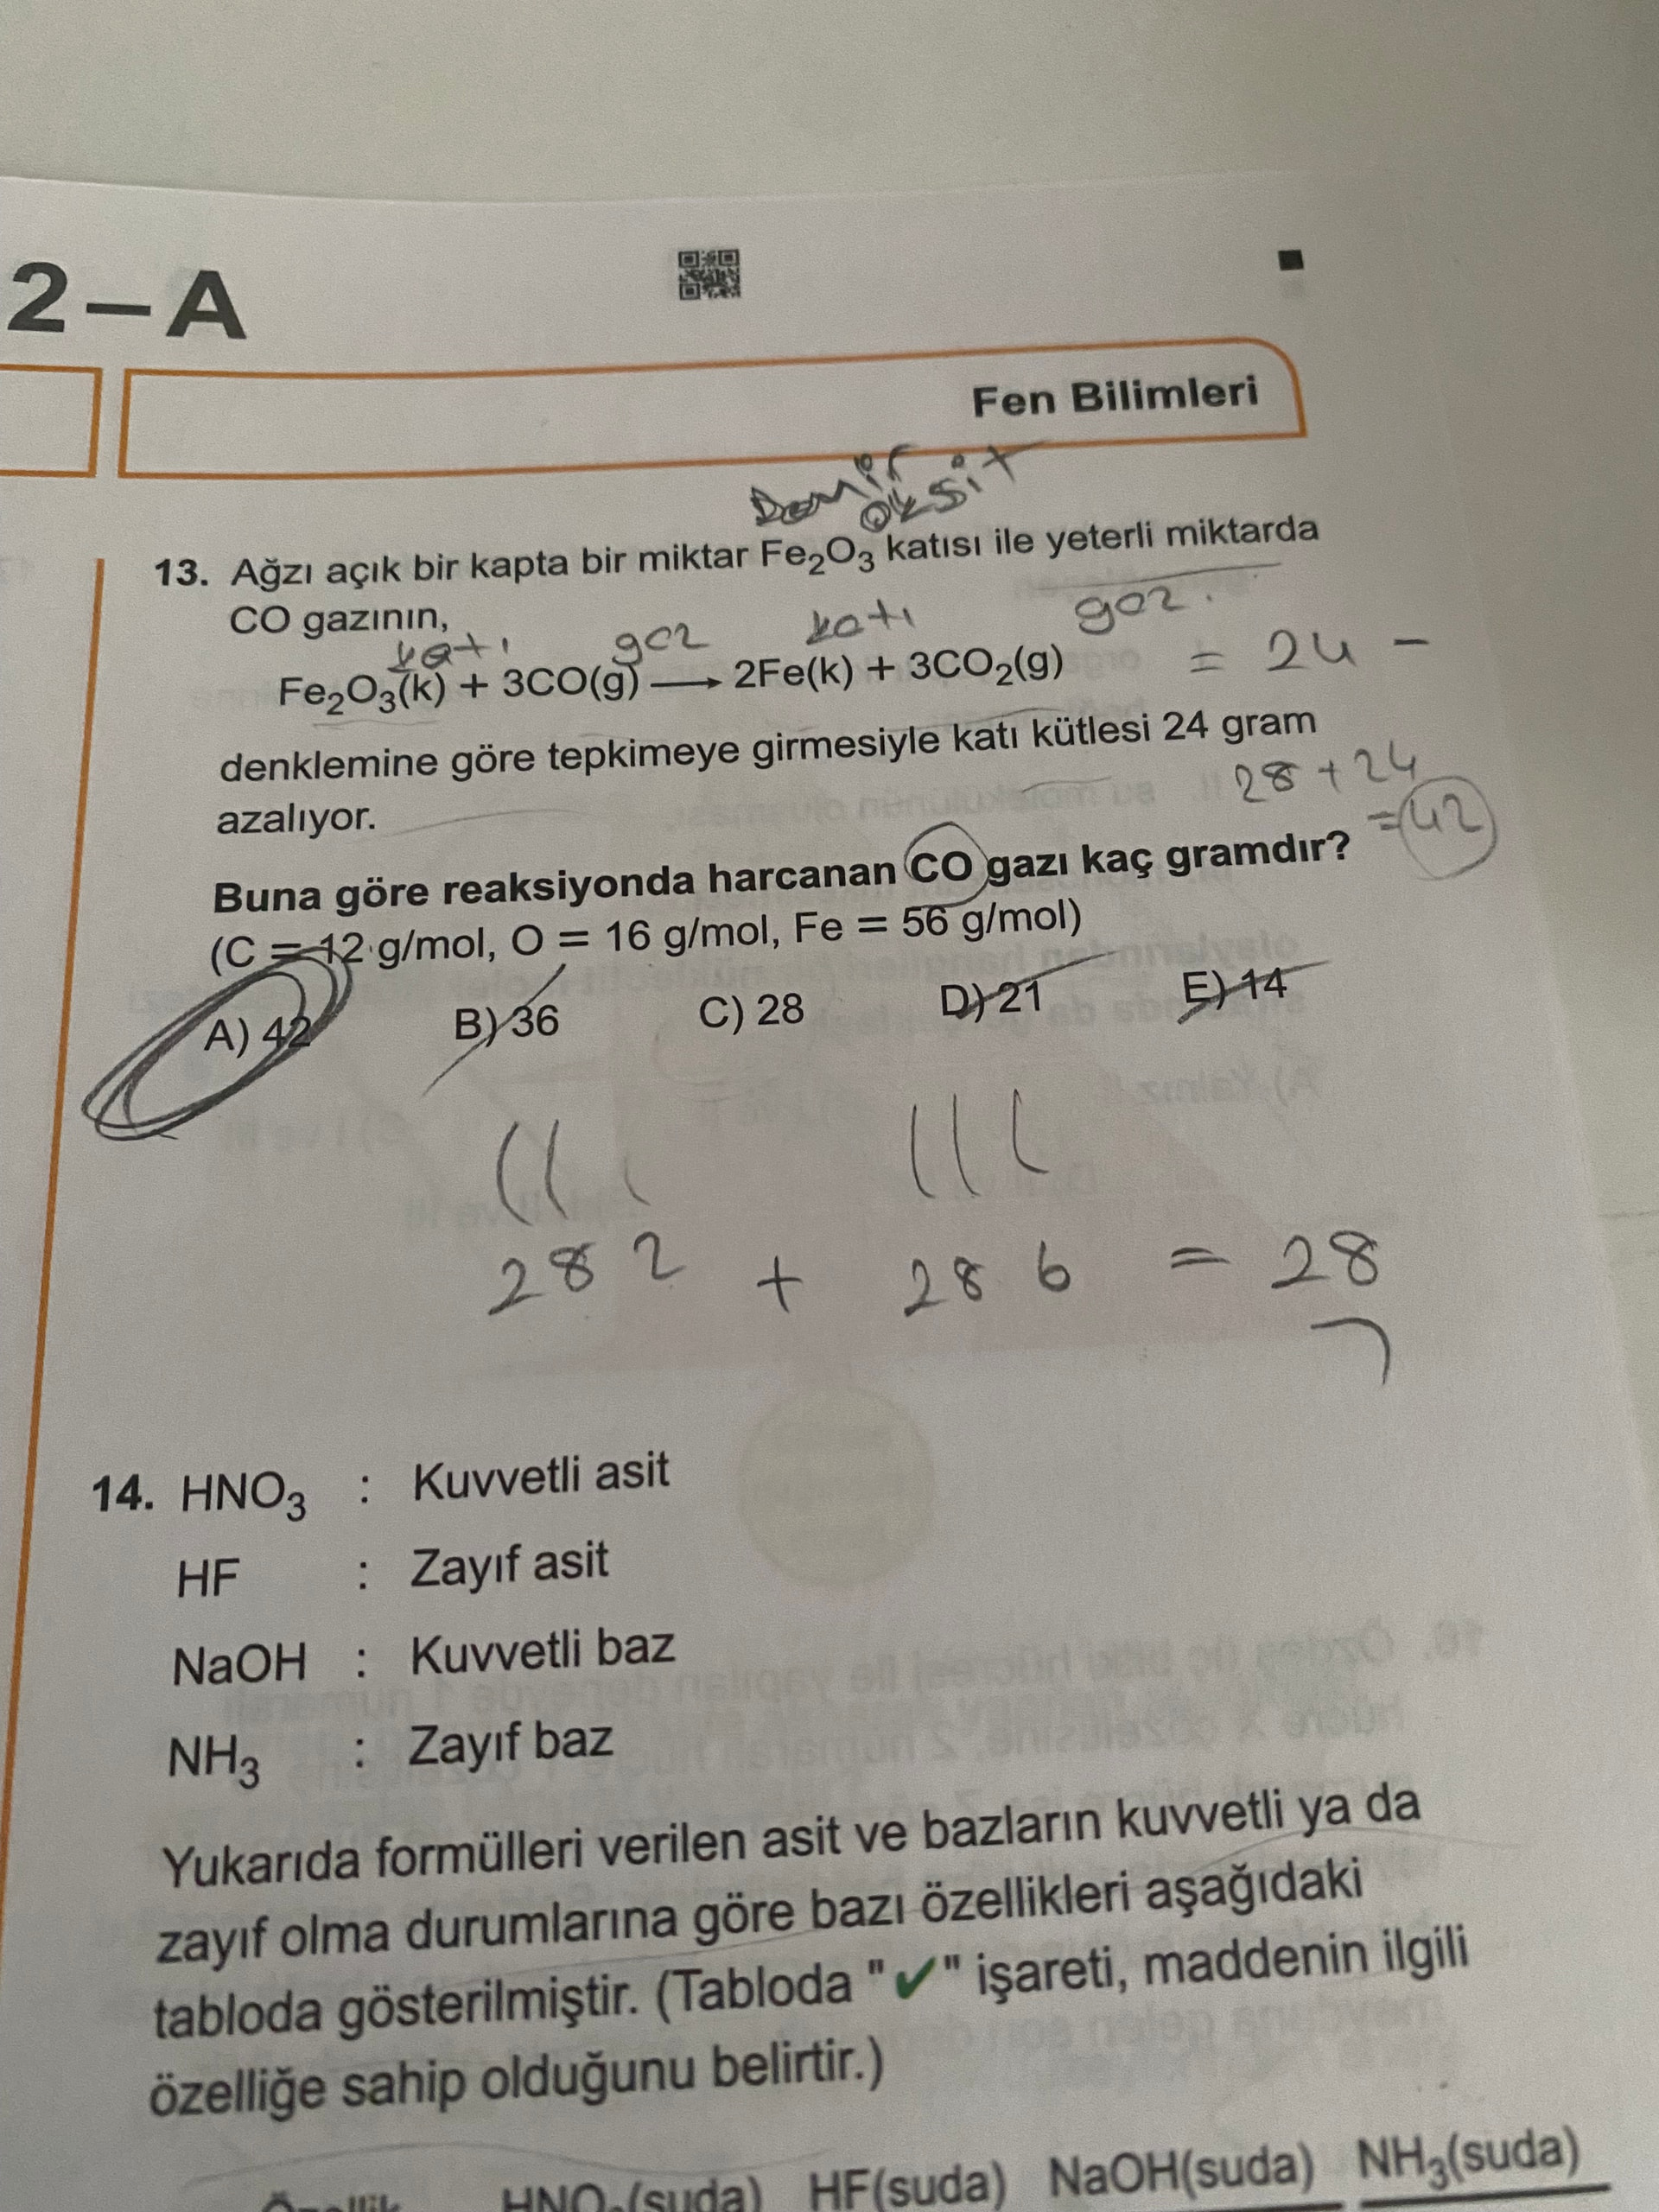 2–A
Fen Bilimleri
Demir
oksit
13. Ağzı açık bir kapta bir miktar Fe₂O₃ katısı ile yeterli miktarda
CO gazının,
katı gaz katı gaz.
Fe₂O₃(k) + 3CO(g) ⟶ 2Fe(k) + 3CO₂(g)
= 24 –
denklemine göre tepkimeye girmesiyle katı kütlesi 24 gram
azalıyor.
28 + 24
= 42
Buna göre reaksiyonda harcanan CO gazı kaç gramdır?
(C = 12 g/mol, O = 16 g/mol, Fe = 56 g/mol)
A) 42 B) 36 C) 28 D) 21 E) 14
28 2 + 28 6 = 28
14. HNO₃ : Kuvvetli asit
HF : Zayıf asit
NaOH : Kuvvetli baz
NH₃ : Zayıf baz
Yukarıda formülleri verilen asit ve bazların kuvvetli ya da
zayıf olma durumlarına göre bazı özellikleri aşağıdaki
tabloda gösterilmiştir. (Tabloda "✔" işareti, maddenin ilgili
özelliğe sahip olduğunu belirtir.)
Özellik HNO₃(suda) HF(suda) NaOH(suda) NH₃(suda)